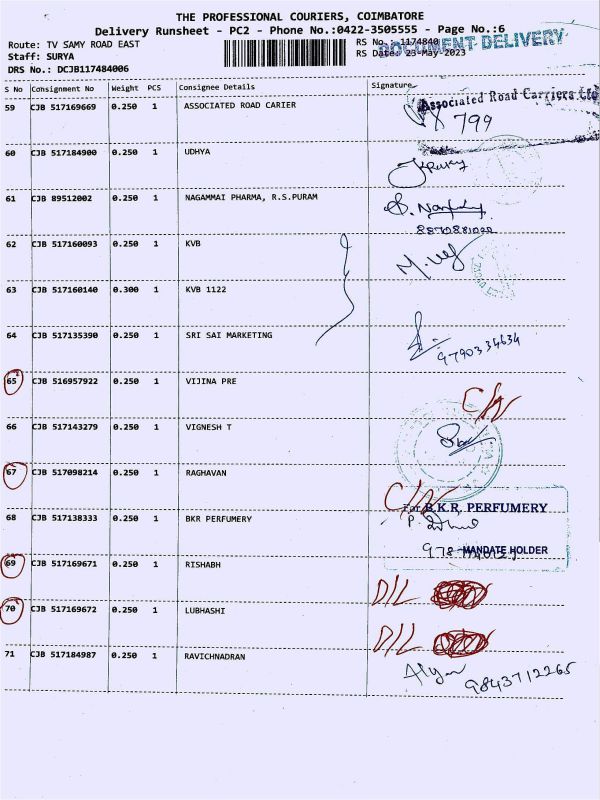 THE PROFESSIONAL COURIERS, COIMBATORE
Delivery Runsheet - PC2 - Phone No.:0422-3505555 - Page No.:6
Route: TV SAMY ROAD EAST RS No.: 1174840
DOCUMENT DELIVERY
Staff: SURYA RS Date: 23-May-2023
DRS No.: DCJB117484006
S No Consignment No Weight PCS Consignee Details Signature
59 CJB 517169669 0.250 1 ASSOCIATED ROAD CARIER
Associated Road Carriers Ltd
799
60 CJB 517184900 0.250 1 UDHYA
61 CJB 89512002 0.250 1 NAGAMMAI PHARMA, R.S.PURAM
62 CJB 517160093 0.250 1 KVB
63 CJB 517160140 0.300 1 KVB 1122
64 CJB 517135390 0.250 1 SRI SAI MARKETING
9790334634
65 CJB 516957922 0.250 1 VIJINA PRE
C/N
66 CJB 517143279 0.250 1 VIGNESH T
67 CJB 517098214 0.250 1 RAGHAVAN
C/N
For B.K.R. PERFUMERY
68 CJB 517138333 0.250 1 BKR PERFUMERY
MANDATE HOLDER
69 CJB 517169671 0.250 1 RISHABH
D/L
70 CJB 517169672 0.250 1 LUBHASHI
D/L
71 CJB 517184987 0.250 1 RAVICHNADRAN
9843712265